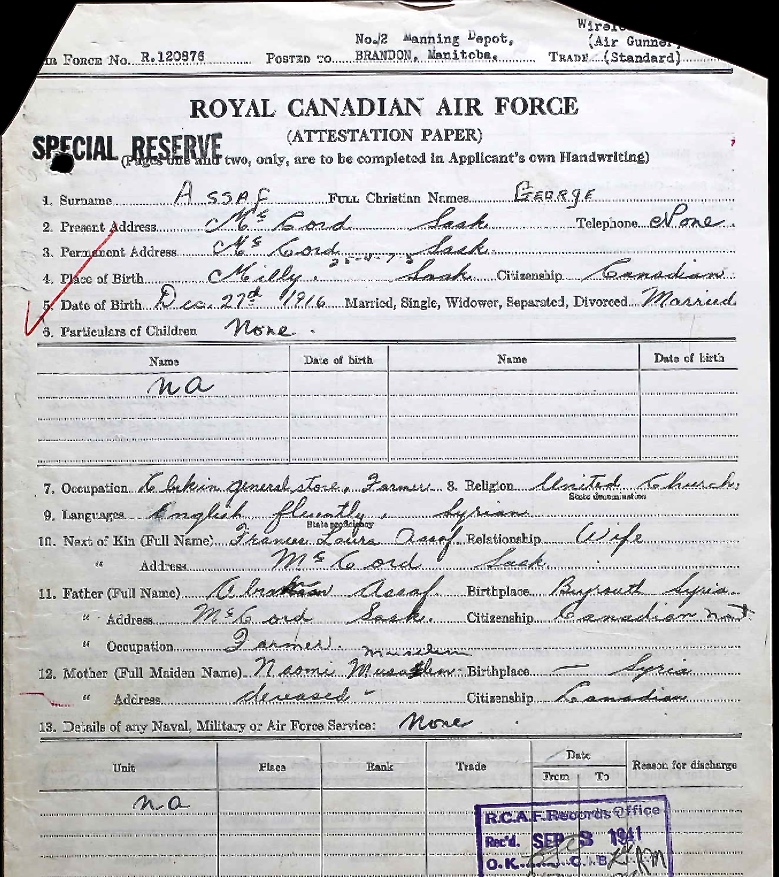 No.2 Manning Depot, (Air Gunner)
Air Force No. R.120876 Posted to BRANDON, Manitoba. Trade (Standard)
ROYAL CANADIAN AIR FORCE
SPECIAL RESERVE (ATTESTATION PAPER)
(Pages one and two, only, are to be completed in Applicant's own Handwriting)
1. Surname Assaf Full Christian Names George
2. Present Address McCord Sask Telephone None.
3. Permanent Address McCord Sask
4. Place of Birth Milly. Sask Citizenship Canadian
5. Date of Birth Dec. 27th 1916 Married, Single, Widower, Separated, Divorced Married
6. Particulars of Children None.
Name Date of birth Name Date of birth
na
7. Occupation general store, Farmer 8. Religion United Church.
State denomination
9. Languages English fluently, Syrian
State proficiency
10. Next of Kin (Full Name) Frances Laura Assaf Relationship Wife
" Address McCord Sask.
11. Father (Full Name) Assaf. Birthplace Beyrouth Syria.
" Address McCord Sask. Citizenship Canadian nat
" Occupation Farmer.
12. Mother (Full Maiden Name) Naomi Birthplace — Syria
" Address deceased - Citizenship Canadian
13. Details of any Naval, Military or Air Force Service: None
Unit Place Rank Trade Date From To Reason for discharge
na
R.C.A.F. Records Office
Rec'd. SEP 3 1941
O.K. C.I.B.